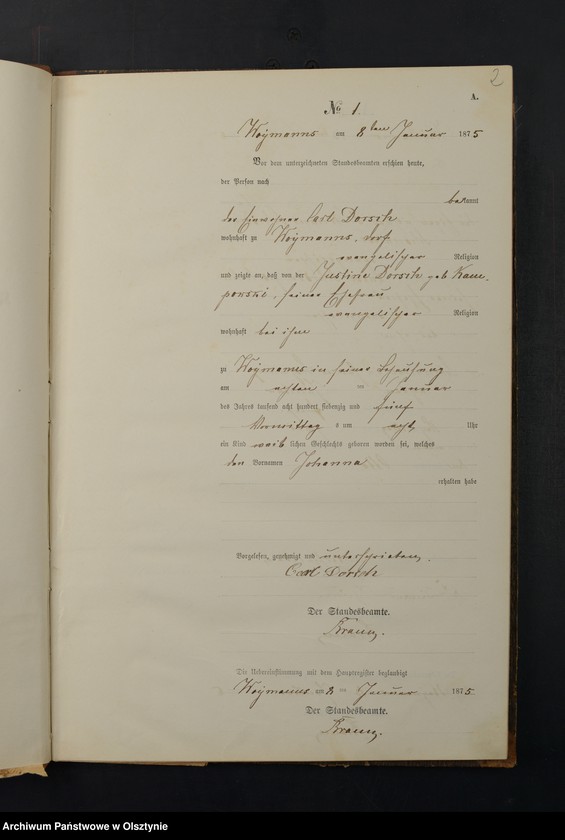 2
A.
No 1.
Woÿmanns am 8ten Januar 1875
Vor dem unterzeichneten Standesbeamten erschien heute,
der Person nach
bekannt
der Einwohner Carl Dorsch
wohnhaft zu Woÿmanns, Dorf
evangelischer Religion
und zeigte an, daß von der Justine Dorsch geb Kam-
ponski, seiner Ehefrau
evangelischer Religion
wohnhaft bei ihm
zu Woÿmanns in seiner Behausung
am achten Januar
des Jahres tausend acht hundert siebenzig und fünf
Vormittags um acht Uhr
ein Kind weiblichen Geschlechts geboren worden sei, welches
den Vornamen Johanna
erhalten habe
Vorgelesen, genehmigt und unterschrieben.
Carl Dorsch
Der Standesbeamte.
Die Uebereinstimmung mit dem Hauptregister beglaubigt
Woÿmanns am 8 ten Januar 1875.
Der Standesbeamte.
Archiwum Państwowe w Olsztynie